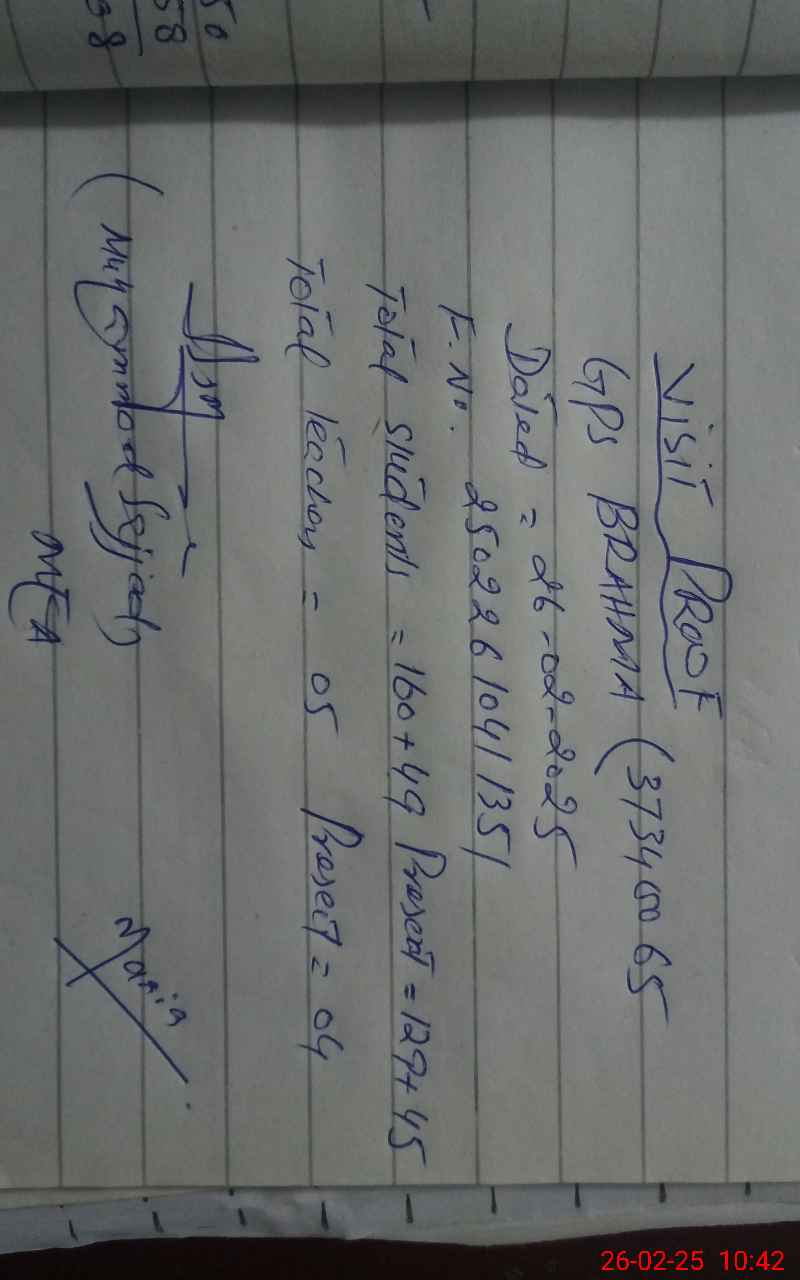 Visit PROOF
GPS BRAHMA (37340065
Dated = 26-02-2025
F.No. 250226104 1351
Total students = 160+49 Present = 129+45
Total teachers = 05 Present = 04
(Muhammad Sajjad)
MEA
50
58
38
26-02-25 10:42